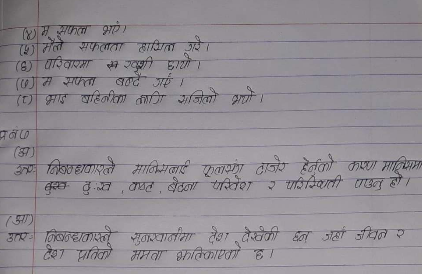 (४) म सफल भएँ।
(५) मैले सफलता हासिल गरे।
(६) परिवारमा खुशी छायो।
(७) म सफल बन्दै गएँ।
(८) भाइ बहिनीका लागि सजिलो भयो।
प्र.नं.७
(अ)
उत्तरः निबन्धकारले मानिसलाई हेर्नुको कारण मानिसमा
दुःख, कष्ट, वेदना परिवेश र परिस्थिती पाउनु हो।
(आ)
उत्तरः निबन्धकारले देश देखेकी छन् जहाँ जीवन र
देश प्रतिको ममता झल्किएको छ।